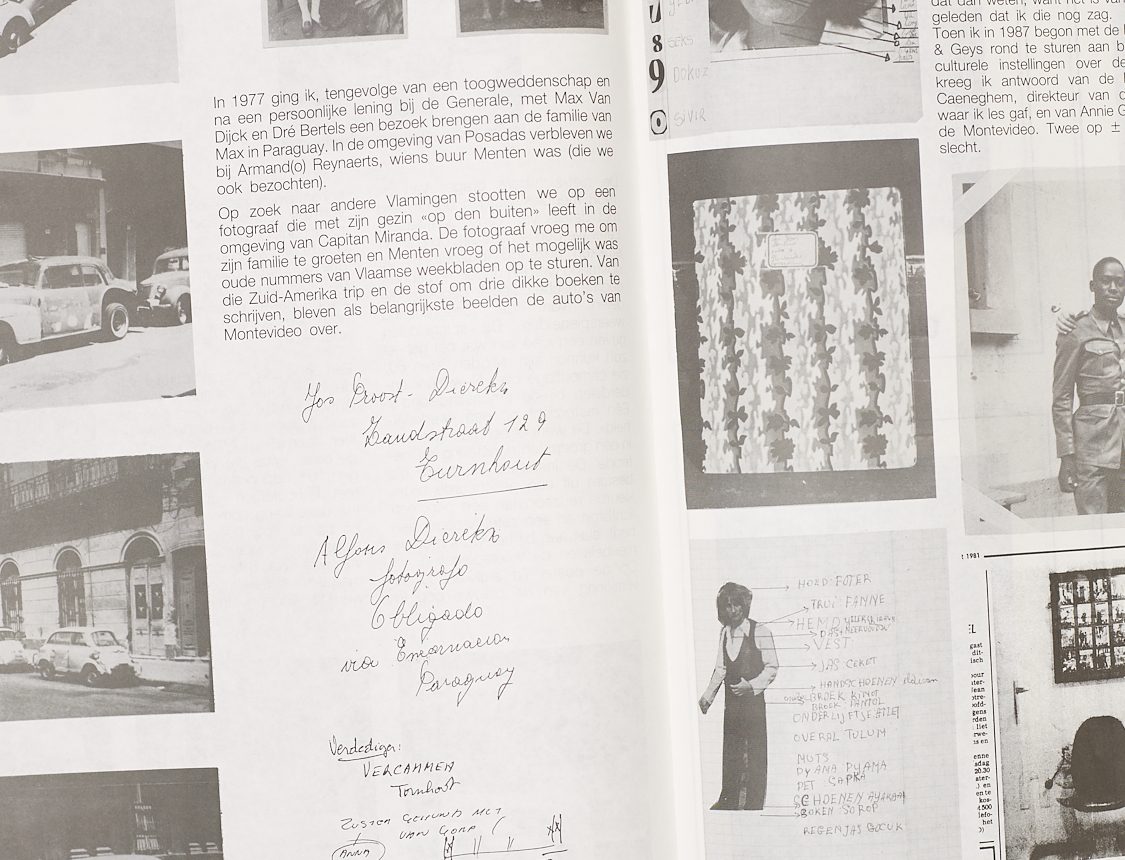 In 1977 ging ik, tengevolge van een toogweddenschap en
na een persoonlijke lening bij de Generale, met Max Van
Dijck en Dré Bertels een bezoek brengen aan de familie van
Max in Paraguay. In de omgeving van Posadas verbleven we
bij Armand(o) Reynaerts, wiens buur Menten was (die we
ook bezochten).
Op zoek naar andere Vlamingen stootten we op een
fotograaf die met zijn gezin «op den buiten» leeft in de
omgeving van Capitan Miranda. De fotograaf vroeg me om
zijn familie te groeten en Menten vroeg of het mogelijk was
oude nummers van Vlaamse weekbladen op te sturen. Van
die Zuid-Amerika trip en de stof om drie dikke boeken te
schrijven, bleven als belangrijkste beelden de auto's van
Montevideo over.
Jos Proost - Dierckx
Zandstraat 129
Turnhout
Alfons Dierckx
fotografo
Obligado
via Encarnacion
Paraguay
Verdediger:
VERCAMMEN
Turnhout
ZUSTER GEHUWD MET
VAN GORP
ANNA
8
9
SEKS
DOKUZ
SIVIR
dat dan weten, want het is
geleden dat ik die nog zag.
Toen ik in 1987 begon met de
& Geys rond te sturen aan
culturele instellingen over de
kreeg ik antwoord van de
Caeneghem, direkteur van
waar ik les gaf, en van Annie
de Montevideo. Twee op ±
slecht.
HOED FOTER
TRUI FANNE
HEMD
VEST
JAS CEKET
HANDSCHOENEN
BROEK
BROEK PANTOL
ONDERLIJFTJE
OVERAL TULUM
MUTS
PYAMA PYAMA
PET SAPKA
SCHOENEN
SOKEN SOROP
REGENJAS GOCUK
1981
EL
gast
dit-
isch
ater-
lean
otre-
oofd-
gens
rden
liet
rwe-
s en
enne
sdag
20.30
ater-
.) en
en te
kos-
4500
lefo-
het